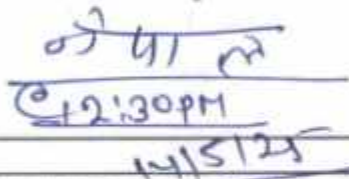 नेपाल
@12:30PM
14/5/25